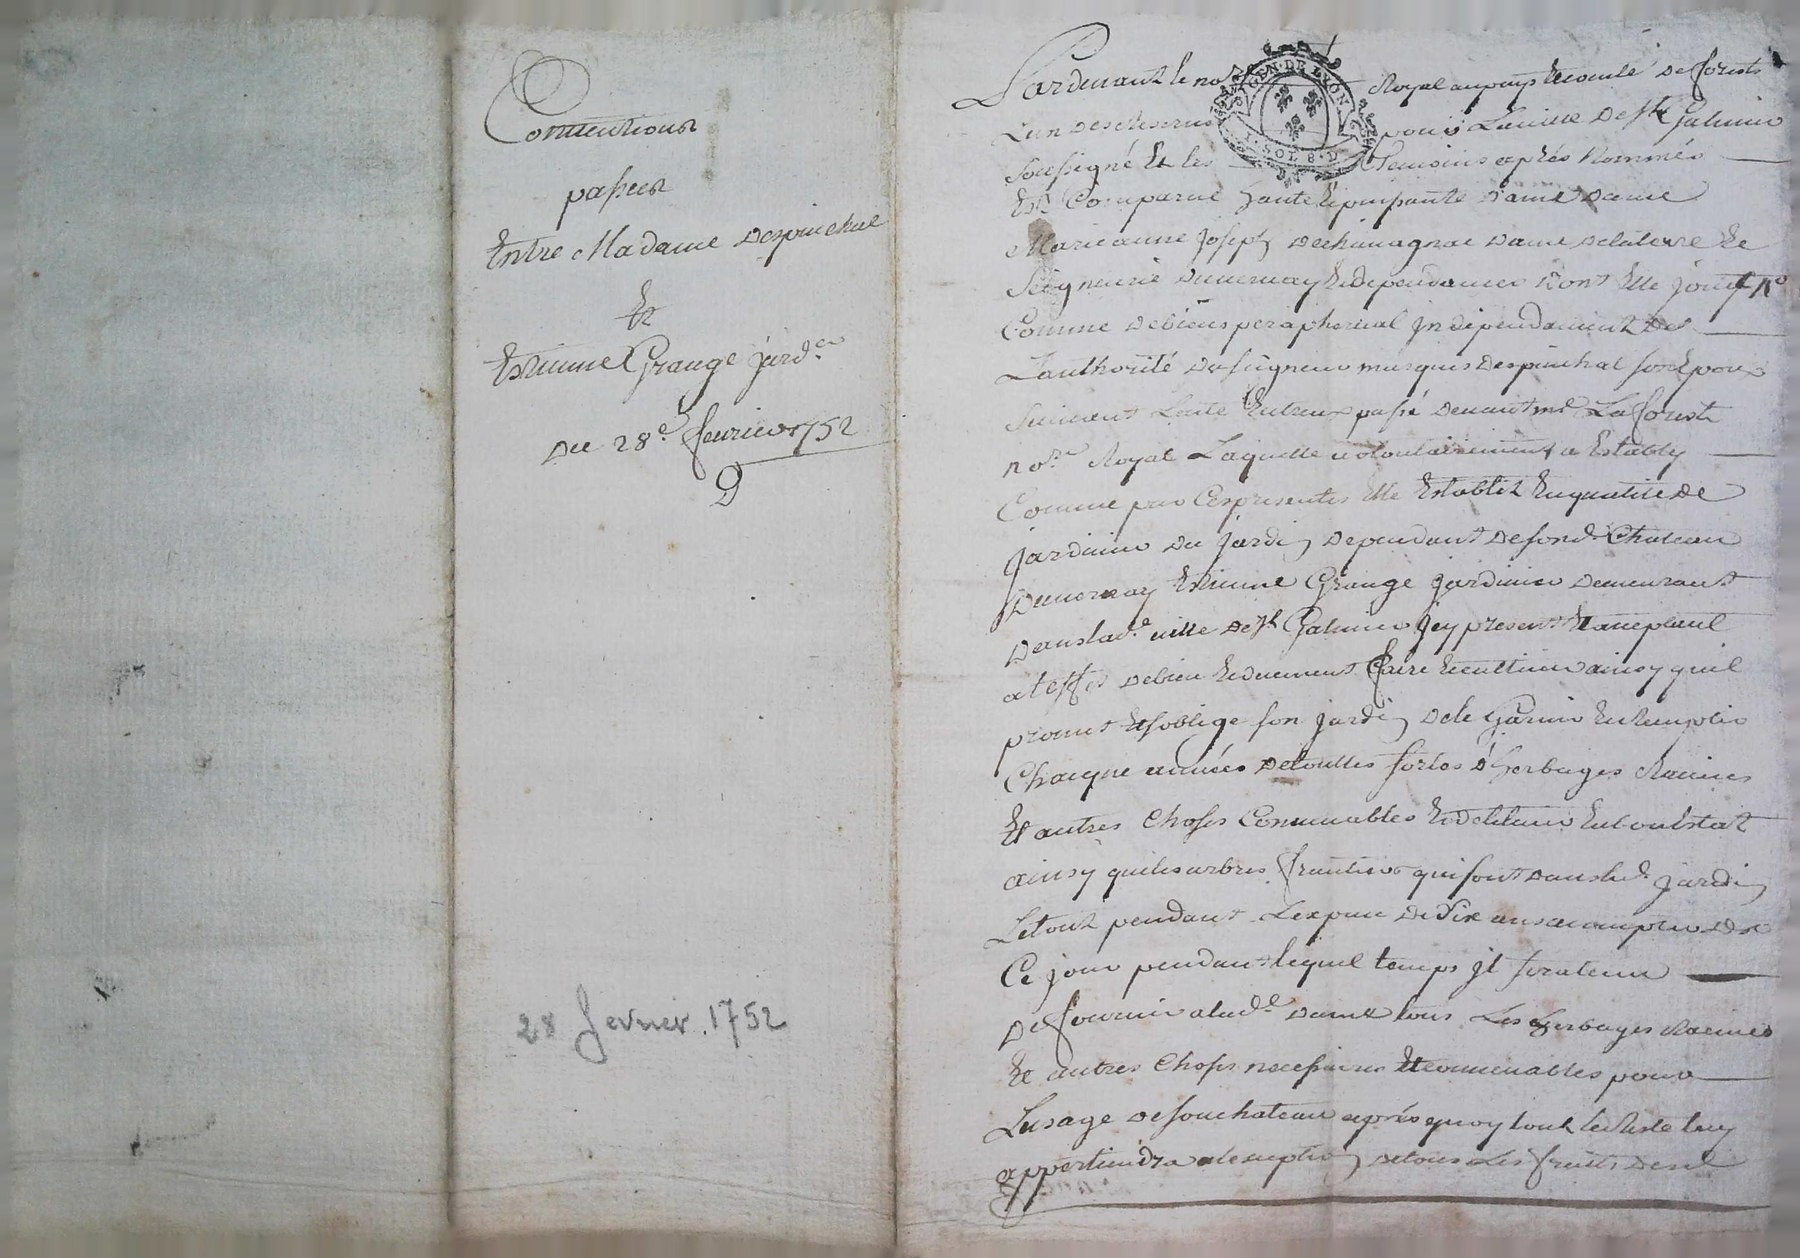 Conventions
passées
Entre Madame Despinchal
Et
Estienne Grange jard.er
Du 28.e fevrier 1752
28 fevrier. 1752
GEN. DE LYON
1. SOL 8. D
Pardevant le no.re Royal au pays et comté de forests
L'un des reservés pour la ville de S.t Galmier
soussigné Et les Temoins aprés Nommés
Est Comparue haute Et puissante dame dame
Marie anne joseph De chavagnac Dame de la terre Et
Seigneurie Et dependances dont Elle jouit
Comme de biens peraphernal jndependament de
L'authorité de seigneur marquis Despinchal son Epoux
suivant L'acte Entreux passé devant m.e La forest
no.re Royal Laquelle volontairement a Estably
Comme par Ces presentes Elle Establit En qualité de
jardinier du jardin dependant de son d. Chateau
Estienne Grange jardinier demeurant
dans lad.e ville de S.t Galmier jcy present Et acceptant
a l'effet de bien Et duement faire Et cultiver ainsy qu'il
promet Et s'oblige son jardin de le garnir Et remplir
Chaque années de touttes sortes d'herbages Racines
Et autres choses Convenables Et de le tenir En bon Estat
ainsy que les arbres fruitiers qui sont dans led. jardin
Le tout pendant L'espace de six ans a compter de
Ce jour pendant lequel temps jl sera tenu
De fournir a lad.e Dame tous Les herbages Racines
Et autres choses necessaires Et convenables pour
L'usage de son chateau aprés quoy tout le Reste luy
appartiendra a l'exception de tous Les fruits